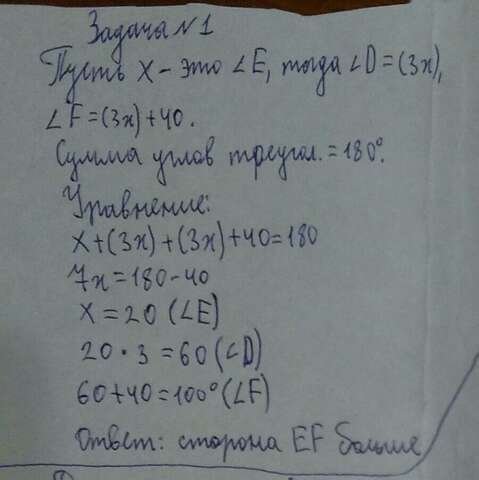 Задача №1
Пусть x - это ∠E, тогда ∠D = (3x),
∠F = (3x) + 40.
Сумма углов треугол. = 180°.
Уравнение:
x + (3x) + (3x) + 40 = 180
7x = 180 - 40
x = 20 (∠E)
20 · 3 = 60 (∠D)
60 + 40 = 100° (∠F)
Ответ: сторона EF больше